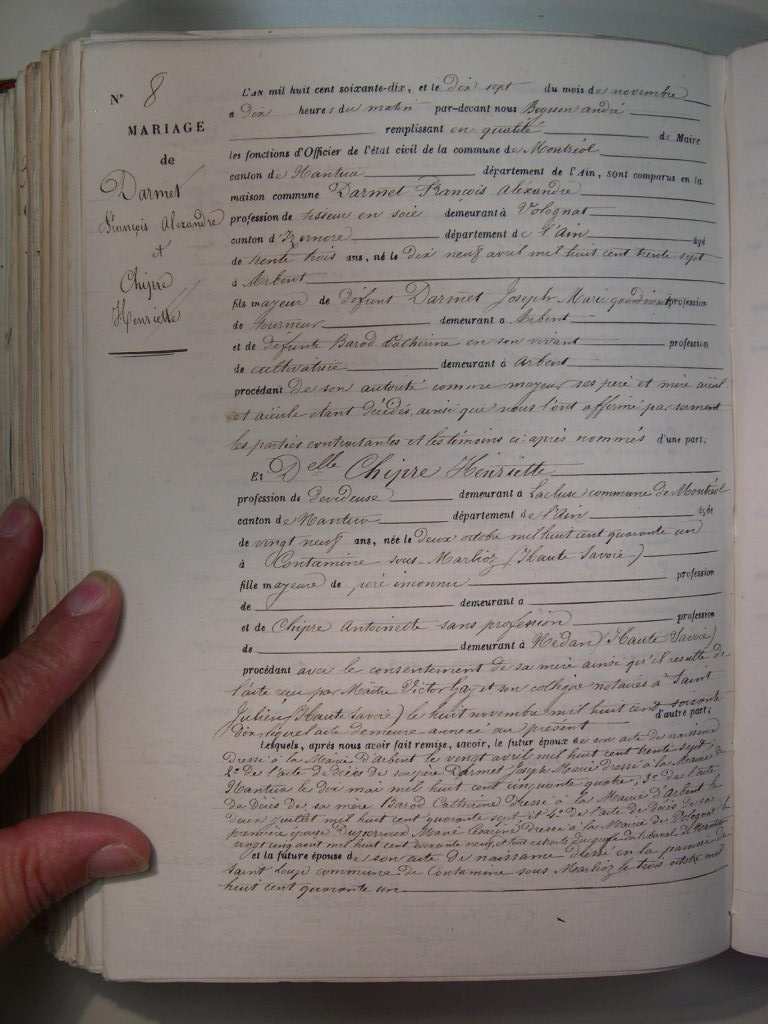 N° 8
MARIAGE
de
Darmet
François Alexandre
et
Chipre
Henriette
L'AN mil huit cent soixante-dix, et le dix sept du mois de novembre
a dix heures du matin par-devant nous Beguin andré
remplissant en qualité de Maire
les fonctions d'Officier de l'état civil de la commune de Montréal
canton de Nantua département de l'Ain, sont comparus en la
maison commune Darmet François Alexandre
profession de tisseur en soie demeurant à Volognat
canton d'Izernore département de l'Ain âgé
de trente trois ans, né le dix neuf avril mil huit cent trente sept
à Arbent
fils majeur de défunt Darmet Joseph Marie quand vivait profession
de tourneur demeurant a Arbent
et de défunte Barod Catherine en son vivant profession
de cultivatrice demeurant à Arbent
procédant de son autorité comme majeur ses père et mère aïeul
et aïeule étant décédés, ainsi que nous l'ont affirmé par serment
les parties contractantes et les témoins ci après nommés d'une part;
Et Delle Chipre Henriette
profession de devideuse demeurant à Lacluse commune de Montréal
canton de Nantua département de l'ain âgée
de vingt neuf ans, née le deux octobre mil huit cent quarante un
à Contamine sous Marlioz (Haute Savoie)
fille majeure de père inconnu profession
de demeurant a
et de Chipre Antoinette sans profession profession
de demeurant à (Haute Savoie)
procédant avec le consentement de sa mère ainsi qu'il resulte de
l'acte reçu par Maitre Victor Gay et son collègue notaires à Saint
Julien (Haute Savoie) le huit novembre mil huit cent soixante
dix, lequel acte demeure annexé au présent d'autre part;
Lesquels, après nous avoir fait remise, savoir, le futur époux de son acte de naissance
dressé à la Mairie d'Arbent le vingt avril mil huit cent trente sept,
2° de l'acte de décès de son père Darmet Joseph Marie dressé à la Mairie de
Nantua le dix mai mil huit cent cinquante quatre, 3° de l'acte
de décès de sa mère Barod Catherine dressé à la Mairie d'Arbent le
juillet mil huit cent quarante sept et 4° de l'acte de décès de sa
première épouse Marie dressé à la Mairie de Volognat le
vingt cinq aout mil huit cent soixante neuf,
et la future épouse de son acte de naissance dressé en la paroisse de
Saint Loup commune de Contamine sous Marlioz le trois octobre mil
huit cent quarante un